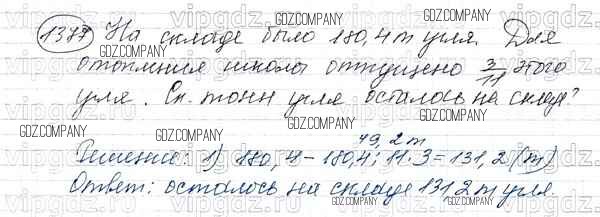 1373 На складе было 180,4 т угля. Для
отопления школы отпущено 3/11 этого
угля. Ск. тонн угля осталось на складе?
49,2 т
Решение: 1) 180,4 - 180,4 : 11 · 3 = 131,2 (т)
Ответ: осталось на складе 131,2 т угля.